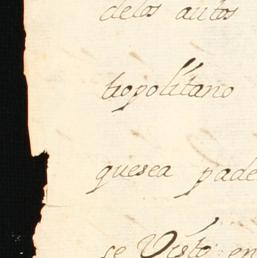 delos autos
tropolitano
quesea pade
se Visto en